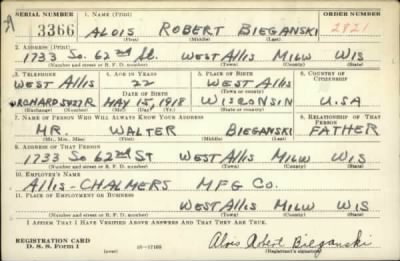 SERIAL NUMBER 1. NAME (Print) ORDER NUMBER
3366 ALOIS ROBERT BIEGANSKI 2821
(First) (Middle) (Last)
2. ADDRESS (Print)
1733 So. 62nd St. WEST ALLIS MILW WIS
(Number and street or R. F. D. number) (Town) (County) (State)
3. TELEPHONE 4. AGE IN YEARS 5. PLACE OF BIRTH 6. COUNTRY OF CITIZENSHIP
WEST ALLIS 22 WEST ALLIS
DATE OF BIRTH (Town or county)
ORCHARD 5037R MAY 15, 1918 WISCONSIN U.S.A
(Exchange) (Number) (Mo.) (Day) (Yr.) (State or country)
7. NAME OF PERSON WHO WILL ALWAYS KNOW YOUR ADDRESS 8. RELATIONSHIP OF THAT PERSON
MR. WALTER BIEGANSKI FATHER
(Mr., Mrs., Miss) (First) (Middle) (Last)
9. ADDRESS OF THAT PERSON
1733 So 62nd ST WEST ALLIS MILW WIS
(Number and street or R. F. D. number) (Town) (County) (State)
10. EMPLOYER'S NAME
ALLIS-CHALMERS MFG Co.
11. PLACE OF EMPLOYMENT OR BUSINESS
WEST ALLIS MILW WIS
(Number and street or R. F. D. number) (Town) (County) (State)
I AFFIRM THAT I HAVE VERIFIED ABOVE ANSWERS AND THAT THEY ARE TRUE.
REGISTRATION CARD
D. S. S. Form 1 (over) 16—17105 Alois Robert Bieganski
(Registrant's signature)